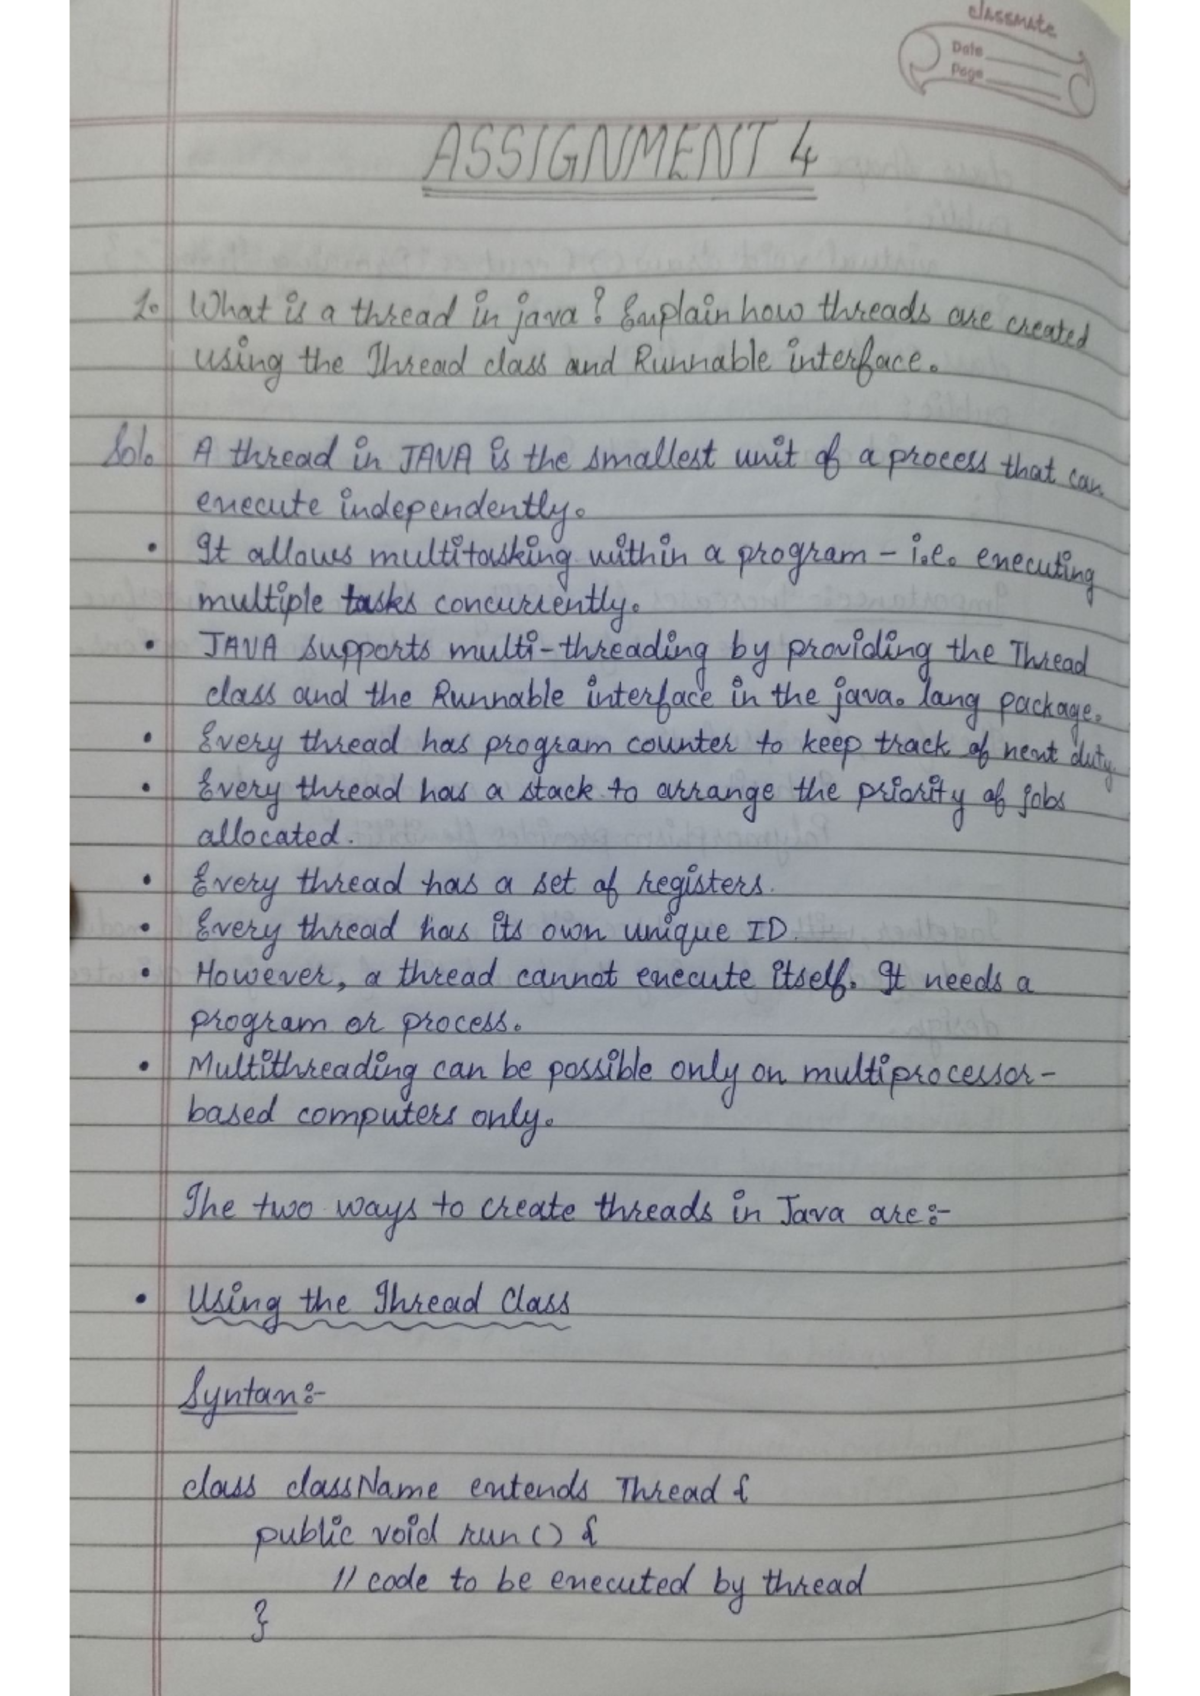 classmate
Date
Page
ASSIGNMENT 4
1. What is a thread in java? Explain how threads are created
using the Thread class and Runnable interface.
Sol. A thread in JAVA is the smallest unit of a process that can
execute independently.
• It allows multitasking within a program – i.e. executing
multiple tasks concurrently.
• JAVA supports multi-threading by providing the Thread
class and the Runnable interface in the java.lang package.
• Every thread has program counter to keep track of next duty
• Every thread has a stack to arrange the priority of jobs
allocated.
• Every thread has a set of registers.
• Every thread has its own unique ID.
• However, a thread cannot execute itself. It needs a
program or process.
• Multithreading can be possible only on multiprocessor-
based computers only.
The two ways to create threads in Java are:-
• Using the Thread Class
Syntax:-
class classname extends Thread {
public void run() {
// code to be executed by thread
}